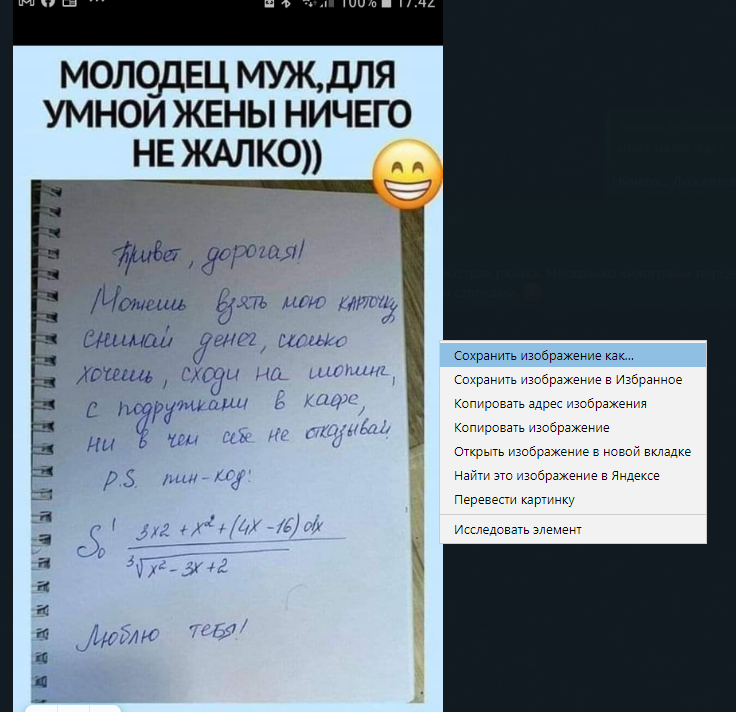 100% 17:42
МОЛОДЕЦ МУЖ,ДЛЯ
УМНОЙ ЖЕНЫ НИЧЕГО
НЕ ЖАЛКО))
Привет, дорогая!
Можешь взять мою карточку
снимай денег, сколько
хочешь, сходи на шопинг,
с подружками в кафе,
ни в чем себе не отказывай.
P.S. пин-код:
S₀¹ 3x2 + x² + (4x - 16) dx
∛x² - 3x + 2
Люблю тебя!
Сохранить изображение как...
Сохранить изображение в Избранное
Копировать адрес изображения
Копировать изображение
Открыть изображение в новой вкладке
Найти это изображение в Яндексе
Перевести картинку
Исследовать элемент